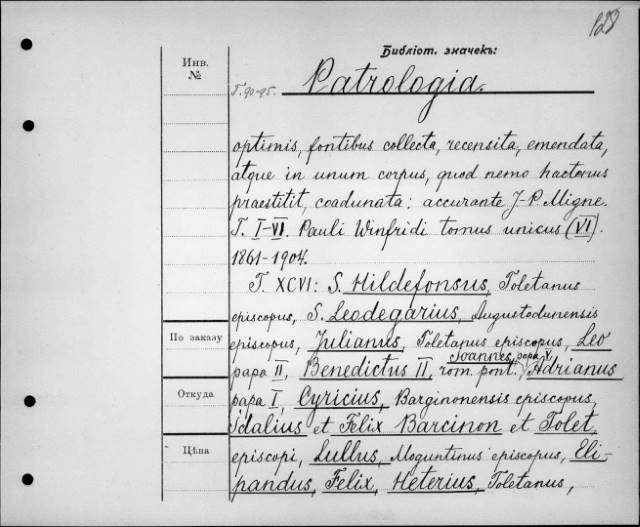 128
Библіот. значекъ:
Инв.
№
T. 90-95. Patrologia.
optimis, fontibus collecta, recensita, emendata,
atque in unum corpus, quod nemo hactenus
praestitit, coadunata: accurante J-P. Migne.
T. I-VI. Pauli Winfridi tomus unicus (VI).
1861-1904.
T. XCVI: S. Hildefonsus, Toletanus
episcopus, S. Leodegarius, Augustodunensis
По заказу
episcopus, Julianus, Toletanus episcopus, Leo
Joannes, papa V,
papa II, Benedictus II, rom. pont., Adrianus
Откуда
papa I, Cyricius, Barginonensis episcopus,
Idalius et Felix Barcinon et Tolet.
Цѣна
episcopi, Lullus, Moguntinus episcopus, Eli-
pandus, Felix, Heterius, Toletanus,